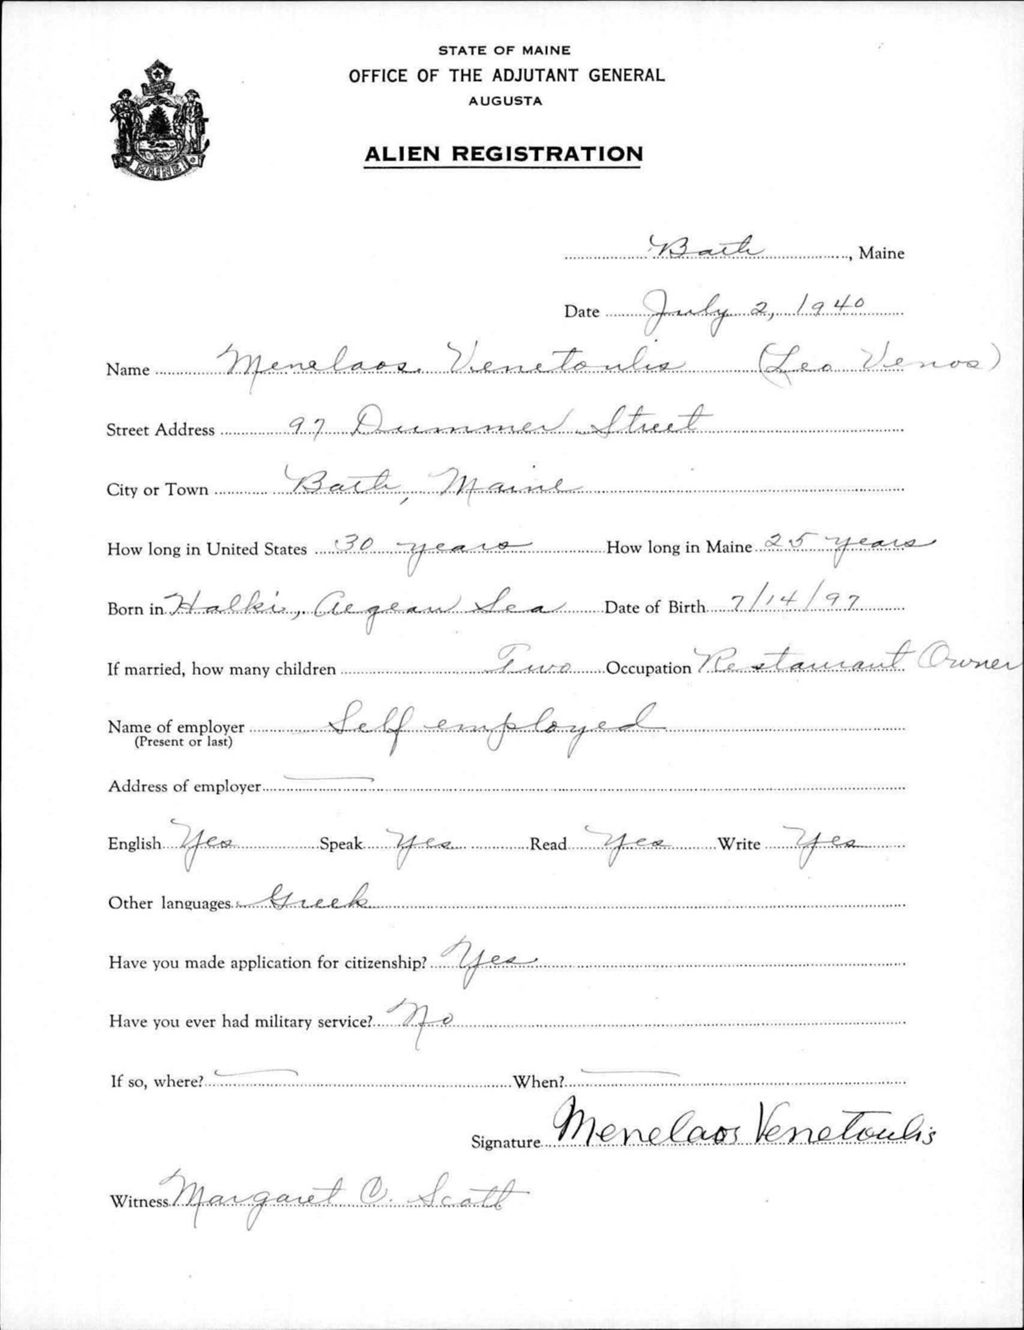 STATE OF MAINE
OFFICE OF THE ADJUTANT GENERAL
AUGUSTA
ALIEN REGISTRATION
MAINE
Bath, Maine
Date July 2, 1940
Name Menelaos Venetoulis (Leo Venos)
Street Address 97 Dummer Street
City or Town Bath, Maine
How long in United States 30 years How long in Maine 25 years
Born in Halki, Aegean Sea Date of Birth 7/14/97
If married, how many children Two Occupation Restaurant Owner
Name of employer Self employed
(Present or last)
Address of employer
English Yes Speak Yes Read Yes Write Yes
Other languages Greek
Have you made application for citizenship? Yes
Have you ever had military service? No
If so, where? When?
Signature Menelaos Venetoulis
Witness Margaret C. Scott